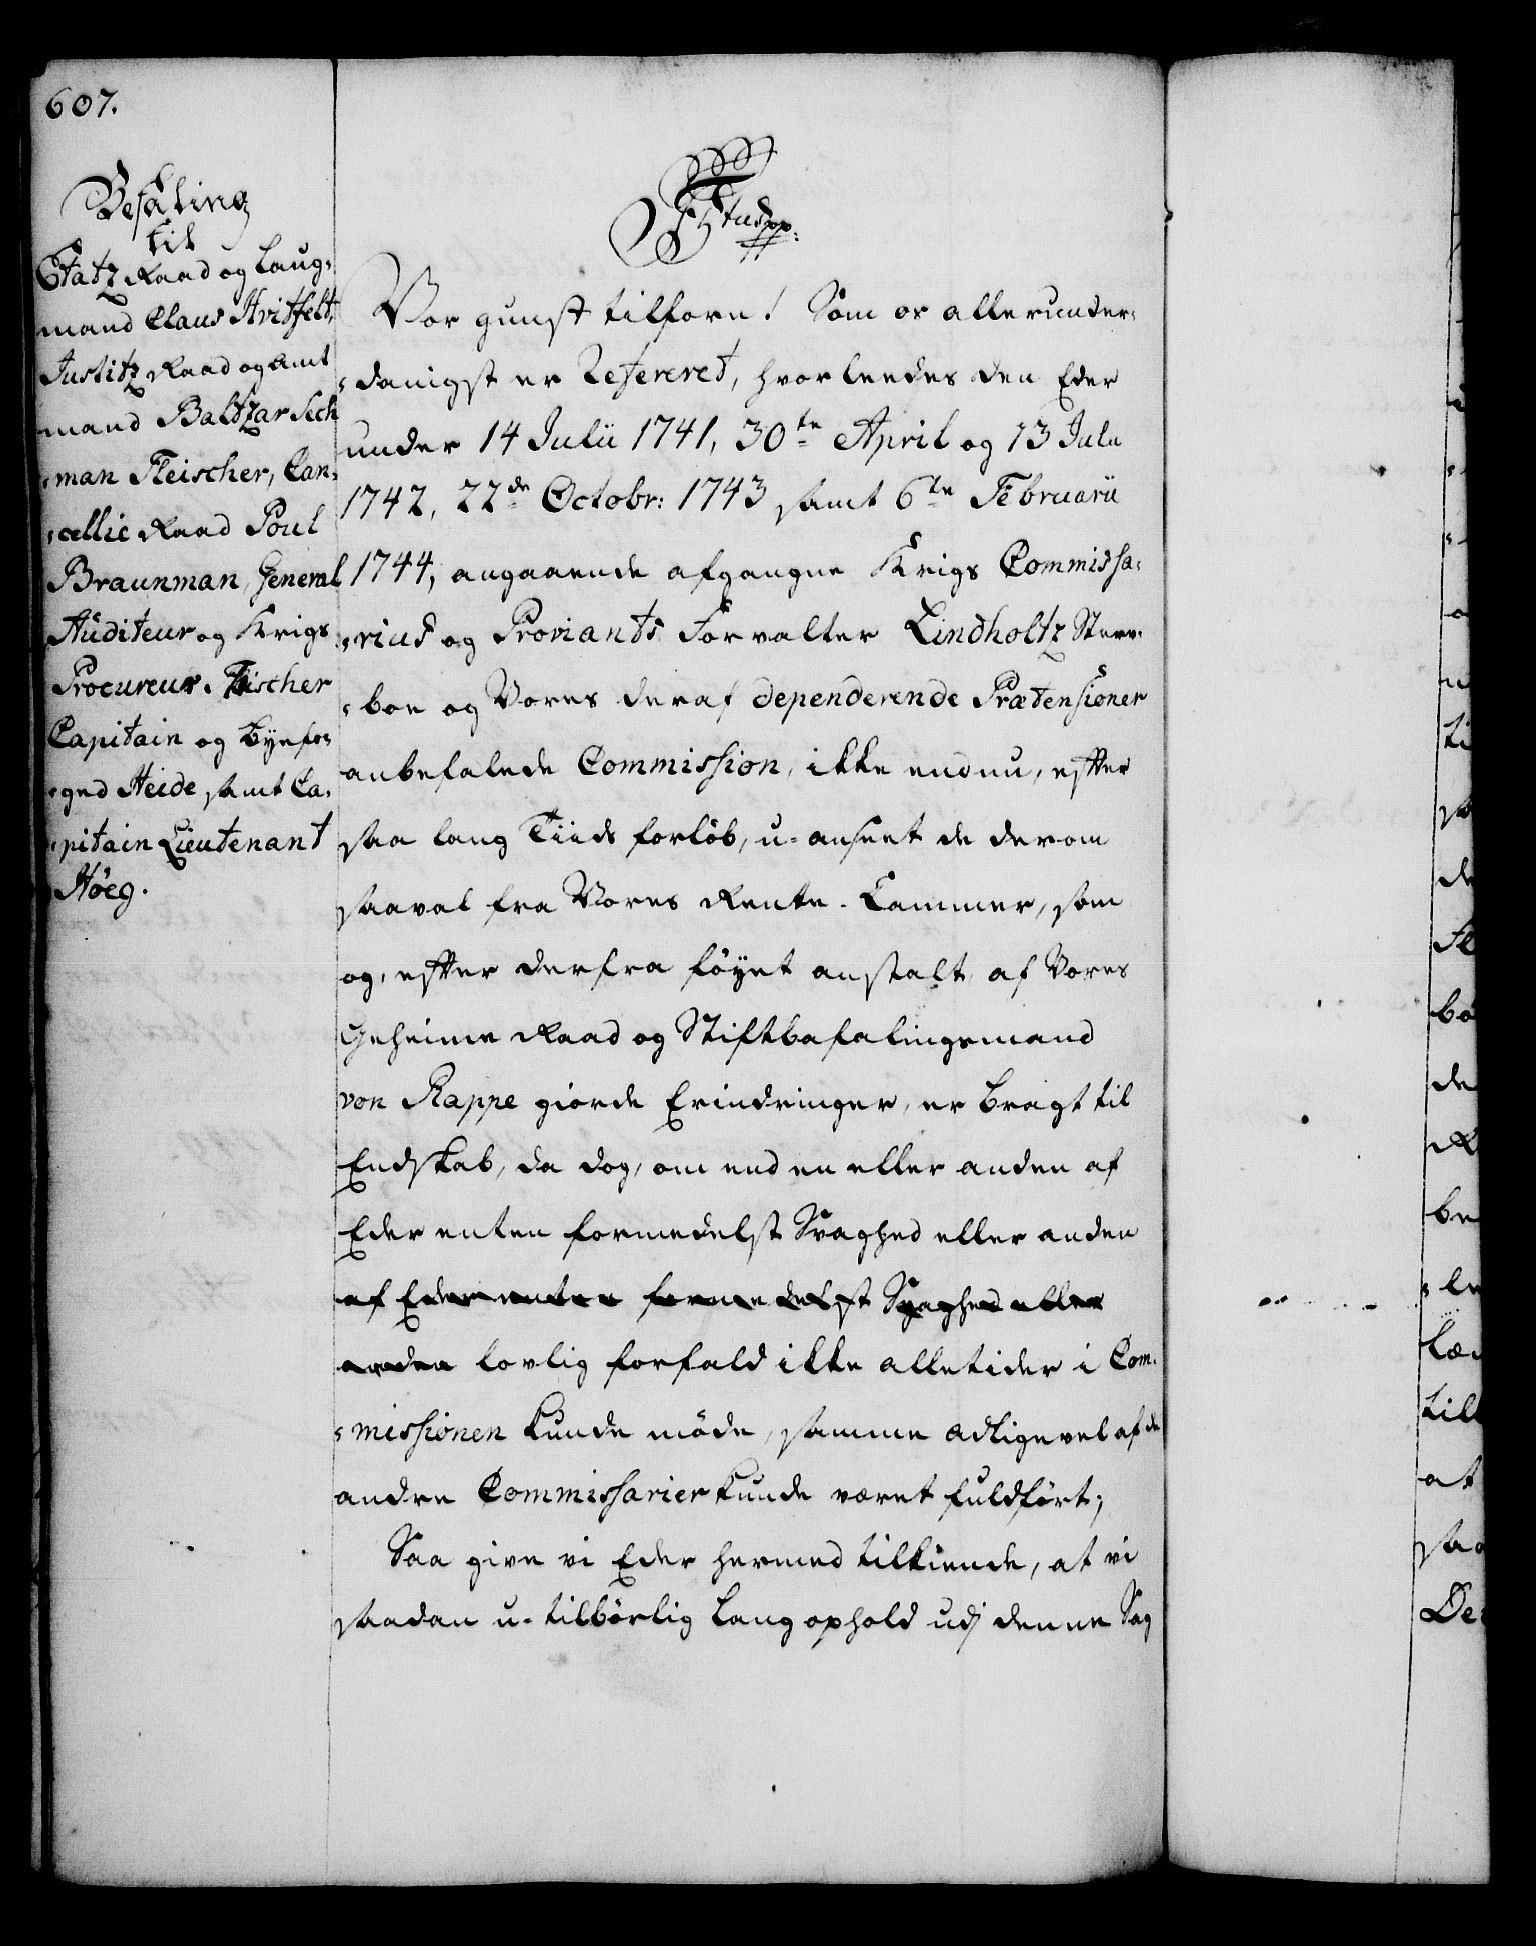 607.
Befaling
til
Etatz Raad og Laug-
mand Claus Hvitfelt,
Justitz Raad og Amt
mand Baltzar Sech
-man Fleischer, Can-
-cellie Raad Poul
Braunman, General
Auditeur og Krigs
Procureur Fischer
Capitain og Byefo-
-ged Heide samt Ca-
-pitain Lieutenant
Höeg.
Vor gunst tilforn! Som os allerunder-
-danigst er Refereret, hvorleedes den Eder
under 14 Julii 1741, 30te April og 13 Julii
1742, 22de Octobr: 1743 samt 6te Februarii
1744, angaaende afgangne Krigs Commissa-
-rius og Proviants Forvalter Lindholtz Sterv-
-boe og Vores deraf dependerende Prætensioner
anbefalede Commission, ikke endnu, efter
saa lang Tiids forlöb, u-anseet de derom
saavel fra Vores Rente-Cammer, som
og, efter derfra föyet anstalt af Vores
Geheime Raad og Stiftbefalingsmand
von Rappe giorde Erindringer, er bragt til
Endskab, da dog, om end en eller anden af
Eder enten formedelst Svaghed eller anden
af Eder enten formedelst Svaghed eller
anden lovlig forfald ikke alletider i Com-
-missionen kunde möde, samme adligevel af de
andre Commissarier kunde været fuldfört;
Saa give vi Eder hermed tilkiende, at vi
saadan u-tilbörlig lang ophold udj denne Sag